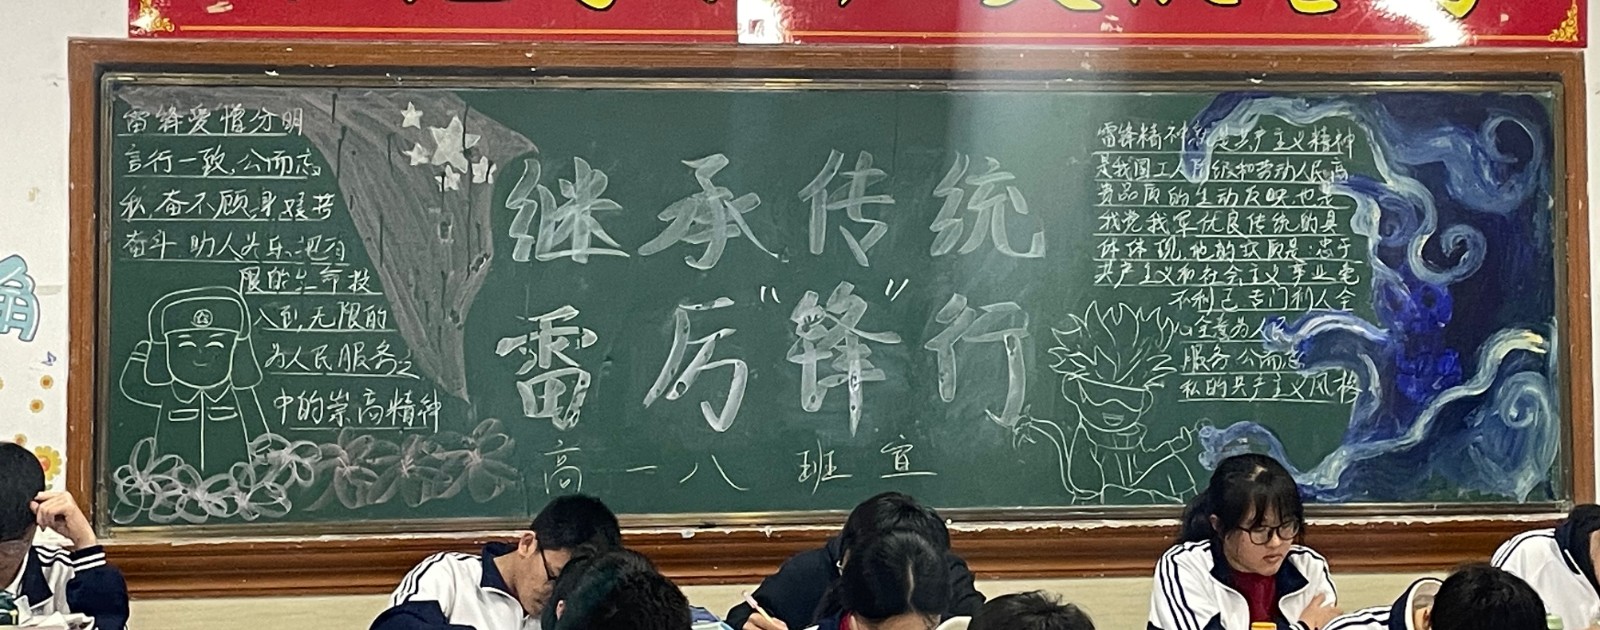 雷锋爱憎分明
言行一致,公而忘
私,奋不顾身,艰苦
奋斗,助人为乐,把有
限的生命投
入到,无限的
为人民服务之
中的崇高精神
继承传统
雷厉“锋”行
高一八班宣
雷锋精神就是共产主义精神
是我国工人阶级和劳动人民高
贵品质的生动反映,也是
我党我军优良传统的具
体体现,他的实质是:忠于
共产主义和社会主义事业,毫
不利己专门利人全
心全意为人民
服务公而忘
私的共产主义风格
角